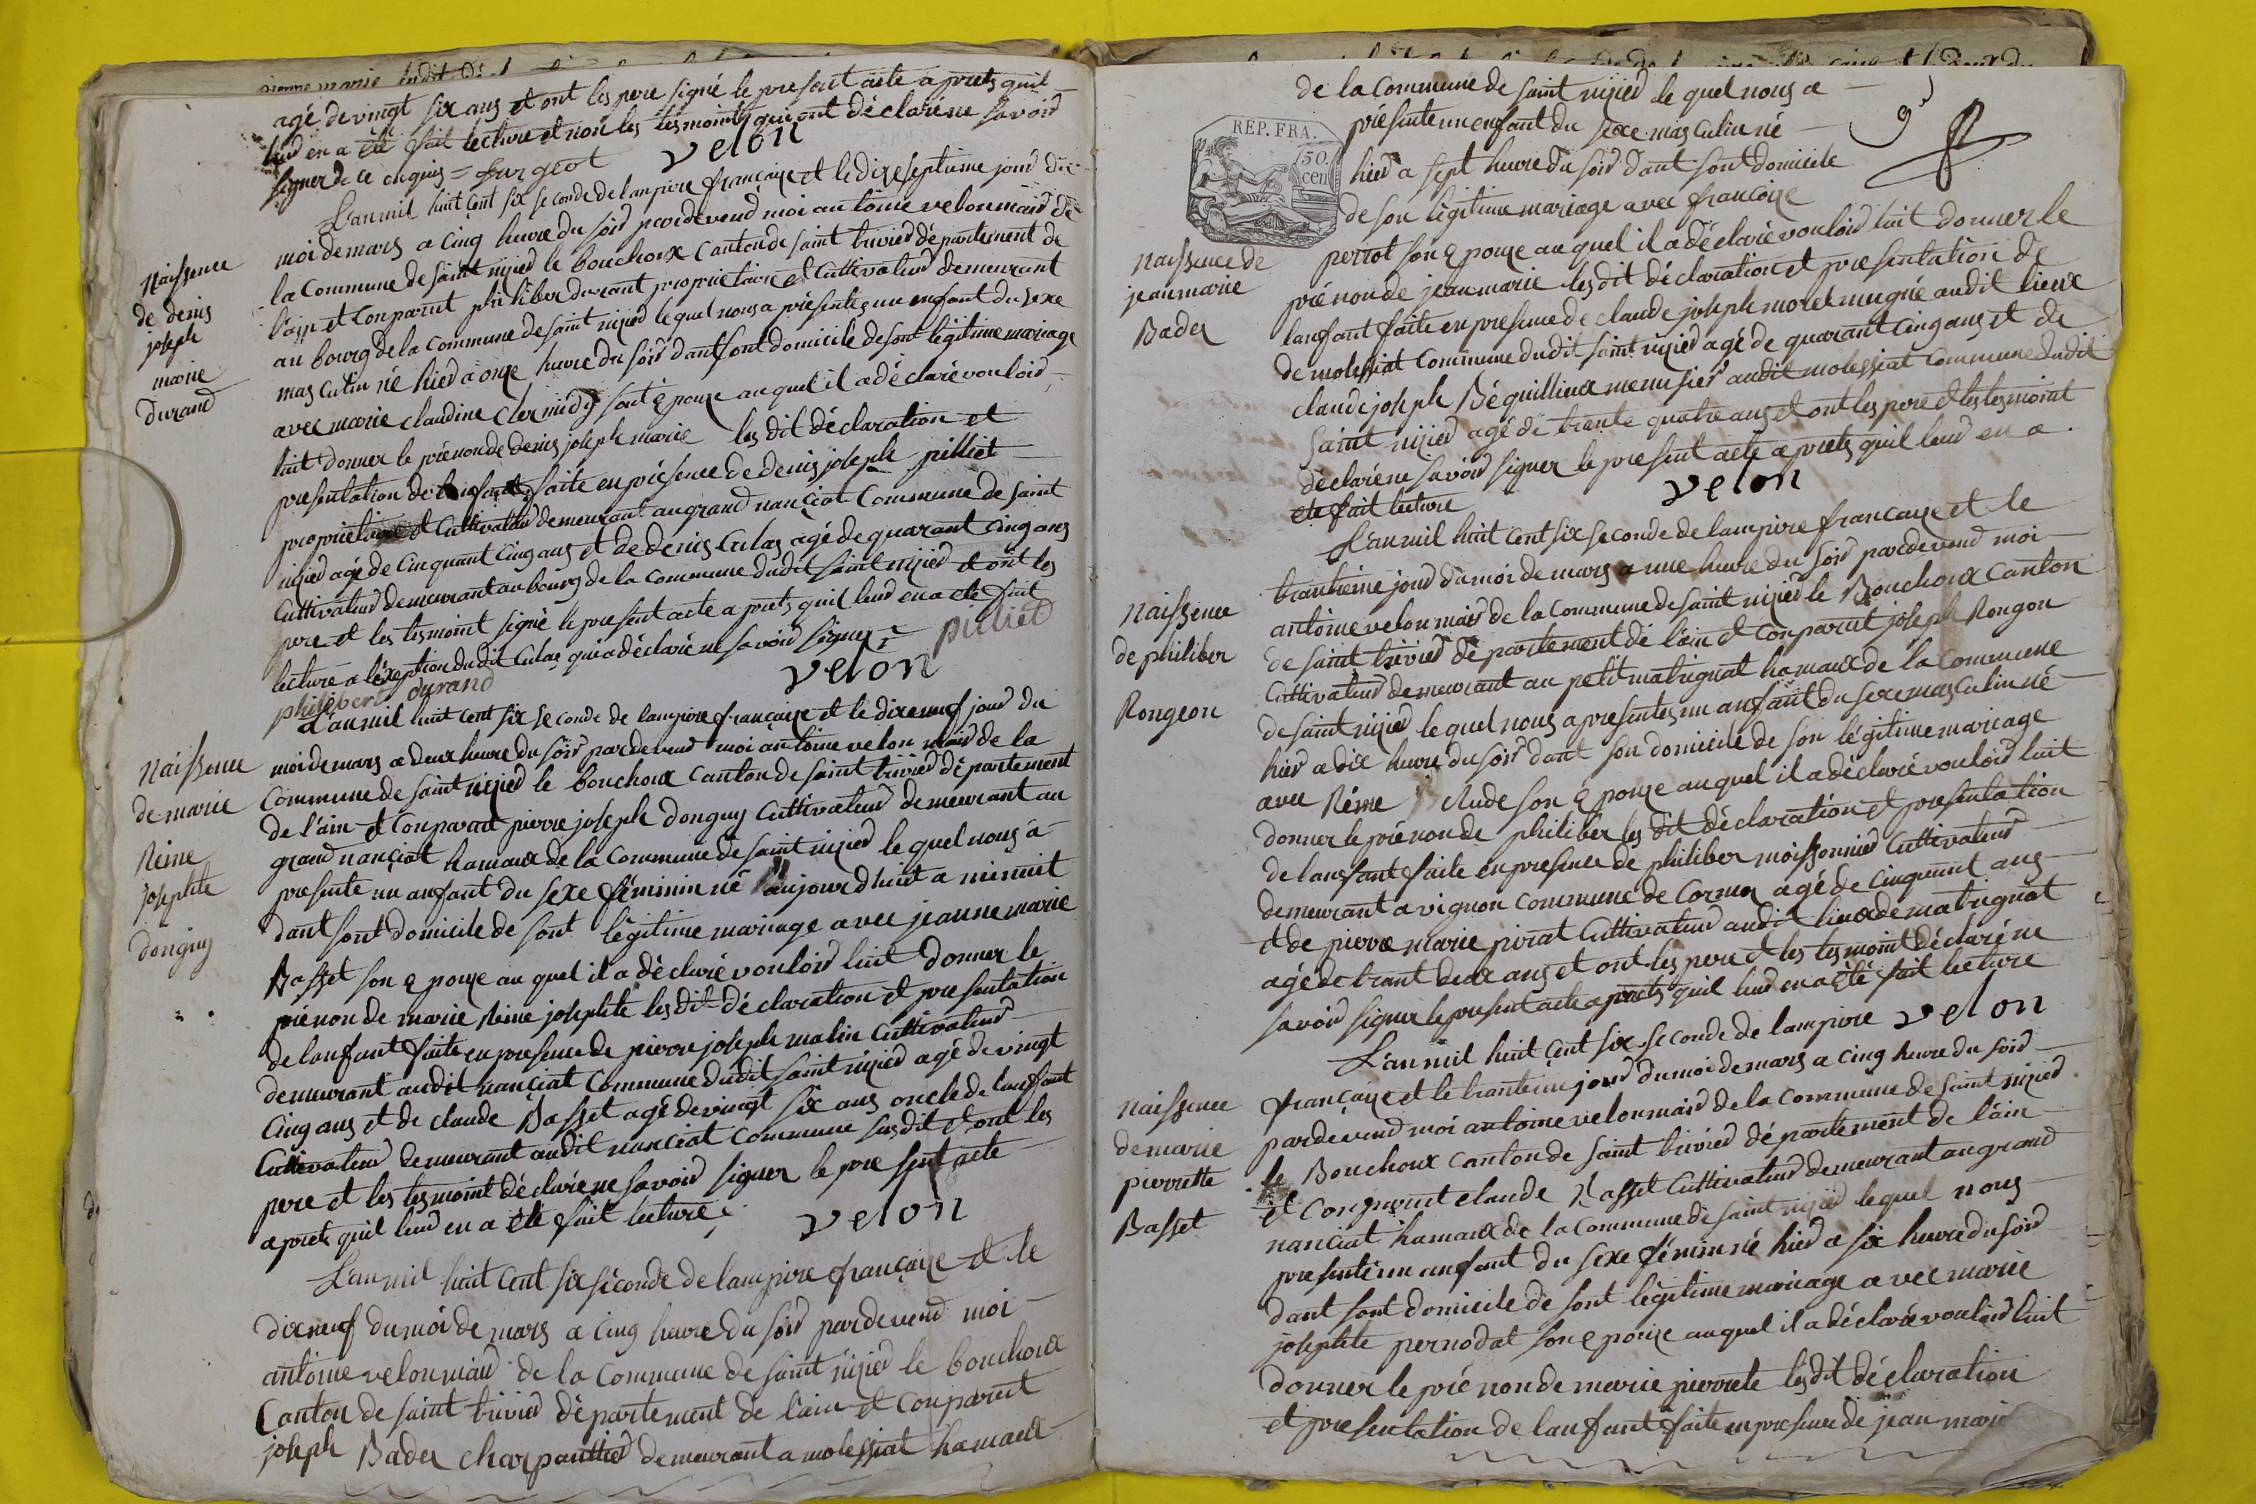 agé de vingt six ans et ont les pere signé le present acte a prets quil
leur en a été fait lecture et non les tesmoints qui ont déclaré ne savoir
signer de ce enquis = furgeot velon
L'an mil huit cent six seconde de lanpire françaize et le dixe septiême jour du
moi de mars a cinq heure du soir pardevend moi antoine velon maire de
la Commune de Saint nizier le bouchoux Canton de saint trivier département de
l'ain et Conparut philiber durant proprietaire et Cultivateur demeurant
au bourg de la Commune de saint nizier le quel nous a présentes un enfant du sexe
mas Culin né hier a onze heure du soir dant sont domicile de sont légitime mariage
avec marie claudine Clermidy sont epouze au quel il a déclaré vouloir
luit donner le prénon de denis joseph marie les dit déclaration et
presentation de lanfant faite en présence de denis joseph pilliet
propriétaire et Cultivateur demeurant au grand nançiat Commune de saint
nizier agé de Cinquant Cinq ans et de denis Culas agé de quarant Cinq ans
Cultivateur demeurant au bourg de la Commune dudit saint nizier et ont les
pere et les tesmoint signé le present acte a prets quil leur en a été fait
lecture a léxeption dudit Culas qui a déclaré ne savoir signer = pilliet
philibert durand velon
Naissence
de denis
joseph
marie
durand
L'an mil huit cent six seconde de lanpire françaize et le dixe neuf jour du
moi de mars a deux heure du soir pardevend moi antoine velon maire de la
Commune de saint nizier le bouchoux Canton de saint trivier département
de l'ain et Conparut pierre joseph donguy Cultivateur demeurant au
grand nançiat hamaux de la Commune de saint nizier le quel nous a
presente un anfant du sexe féminin né aujourdhuit a minuit
dant sont domicile de sont légitime mariage avec jeanne marie
Basset son epouze au quel il a déclaré vouloir luit donner le
prénon de marie Réine josephte les dit déclaration et presentation
de lanfant faite en presence de pierre joseph malin Cultivateur
demeurant audit nançiat Commune dudit saint nizier agé de vingt
Cinq ans et de claude Basset agé de vingt six ans oncle de lanfant
Cultivateur demeurant audit nanciat Commune susdit et ont les
pere et les tesmoint déclaré ne savoir signer le present acte
a prets quil leur en a été fait lecture velon
Naissence
de marie
Réine
josephte
donguy
L'an mil huit Cent six séconde de lanpire françaize et le
dixneuf du moi de mars a Cinq heure du soir pardevend moi
antoine velon maire de la Commune de saint nizier le bouchoux
Canton de saint trivier département de l'ain et Conparut
joseph Badez Charpanttier demeurant a molessiat hamaux
REP. FRA.
50.
cen
9
de la Commune de saint nizier le quel nous a
présente un enfant du sexe mas Culin né
hier a sept heure du soir dant sont domicile
de son légitime mariage avec françoize
perrot son epouze au quel il a déclaré vouloir luit donner le
prénon de jean marie les dit déclaration et presentation de
lanfant faite en presence de claude joseph morel mugnié audit lieux
de molessiat Commune dudit saint nizier agé de quarant Cinq ans et de
claude joseph Béquillieux menusier audit molessiat Commune dudit
saint nizier agé de trante quatre ans et ont les pere et les tesmoint
déclaré ne savoir signer le present acte a prets quil leur en a
été fait lecture velon
Naissence de
jean marie
Badez
L'an mil huit cent six seconde de lanpire françaize et le
trantiéme jour du moi de mars a une heure du soir pardevend moi
antoine velon maire de la Commune de saint nizier le Bouchoux Canton
de saint trivier département de l'ain et Conparut joseph Rongon
Cultivateur demeurant au petit matrignat hamaux de la Commune
de saint nizier le quel nous a presentes un anfant du sexe mas Culin né
hier a dix heure du soir dant son domicile de son légitime mariage
avec Réine Clude son epouze au quel il a déclaré vouloir luit
donner le prénon de philiber les dit déclaration et presentation
de lanfant faite en presence de philiber moissonnier Cultivateur
demeurant a vignon Commune de Cormoz agé de Cinquant ans
et de pierre marie pirat Cultivateur audit lieux de matrignat
agé de trant deux ans et ont les pere et les tesmoint déclaré ne
savoir signer le present acte a prets quil leur en a été fait lecture
Naissence
de philiber
Rongeon
L'an mil huit cent six seconde de lanpire velon
françaize et le trante un jour du moi de mars a cinq heure du soir
pardevend moi antoine velon maire de la Commune de saint nizier
le Bouchoux Canton de saint trivier département de l'ain
et Conparut claude Basset Cultivateur demeurant au grand
nanciat hamaux de la Commune de saint nizier lequel nous
presente un anfant du sexe fémin né hier a six heure du soir
dant sont domicile de sont légitime mariage avec marie
josephte pernodat son epouze au quel il a déclaré vouloir luit
donner le prénon de marie pierrete les dit déclaration
et presentation de lanfant faite en presence de jean marie
Naissence
de marie
pierrette
Basset